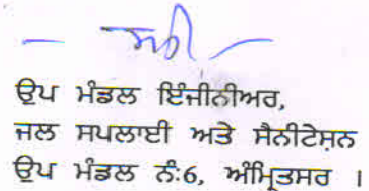 — ਸਹੀ —
ਉਪ ਮੰਡਲ ਇੰਜੀਨੀਅਰ,
ਜਲ ਸਪਲਾਈ ਅਤੇ ਸੈਨੀਟੇਸ਼ਨ
ਉਪ ਮੰਡਲ ਨੰ:6, ਅੰਮ੍ਰਿਤਸਰ ।